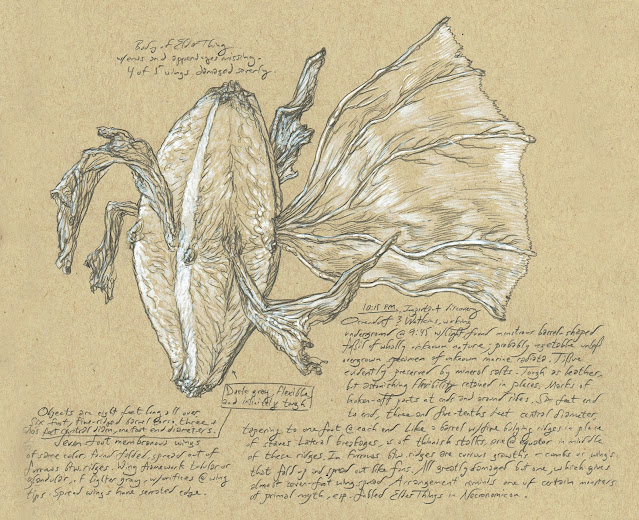 Body of Elder Thing
w/ ends and appendages missing.
4 of 5 wings, damaged severely.
10:15 PM. Important discovery
Orrendorf & Watkins, working
underground @ 9:45 w/ light found monstrous barrel-shaped
fossil of wholly unknown nature; probably vegetable unless
overgrown specimen of unknown marine radiata. Tissue
evidently preserved by mineral salts. Tough as leather,
but astonishing flexibility retained in places. Marks of
broken-off parts at ends and around sides. Six feet end
to end, three and five-tenths feet central diameter,
tapering to one foot @ each end. Like a barrel w/ five bulging ridges in place
of staves. Lateral breakages, as of thinish stalks, are @ equator in middle
of these ridges. In furrows btw. ridges are curious growths - combs or wings
that fold up and spread out like fans. All greatly damaged but one, which gives
almost seven-foot wing spread. Arrangement reminds one of certain monsters
of primal myth, esp. fabled Elder Things in Necronomicon.
Dark grey, flexible,
and infinitely tough
Objects are eight feet long all over.
Six foot, five-ridged barrel torso, three &
five-tenths feet central diam, one foot end diameters.
Seven foot membranous wings
of same color found folded, spread out of
furrows btw. ridges. Wing framework tubular or
glandular, of lighter gray, w/ orifices @ wing
tips. Spread wings have serrated edge.